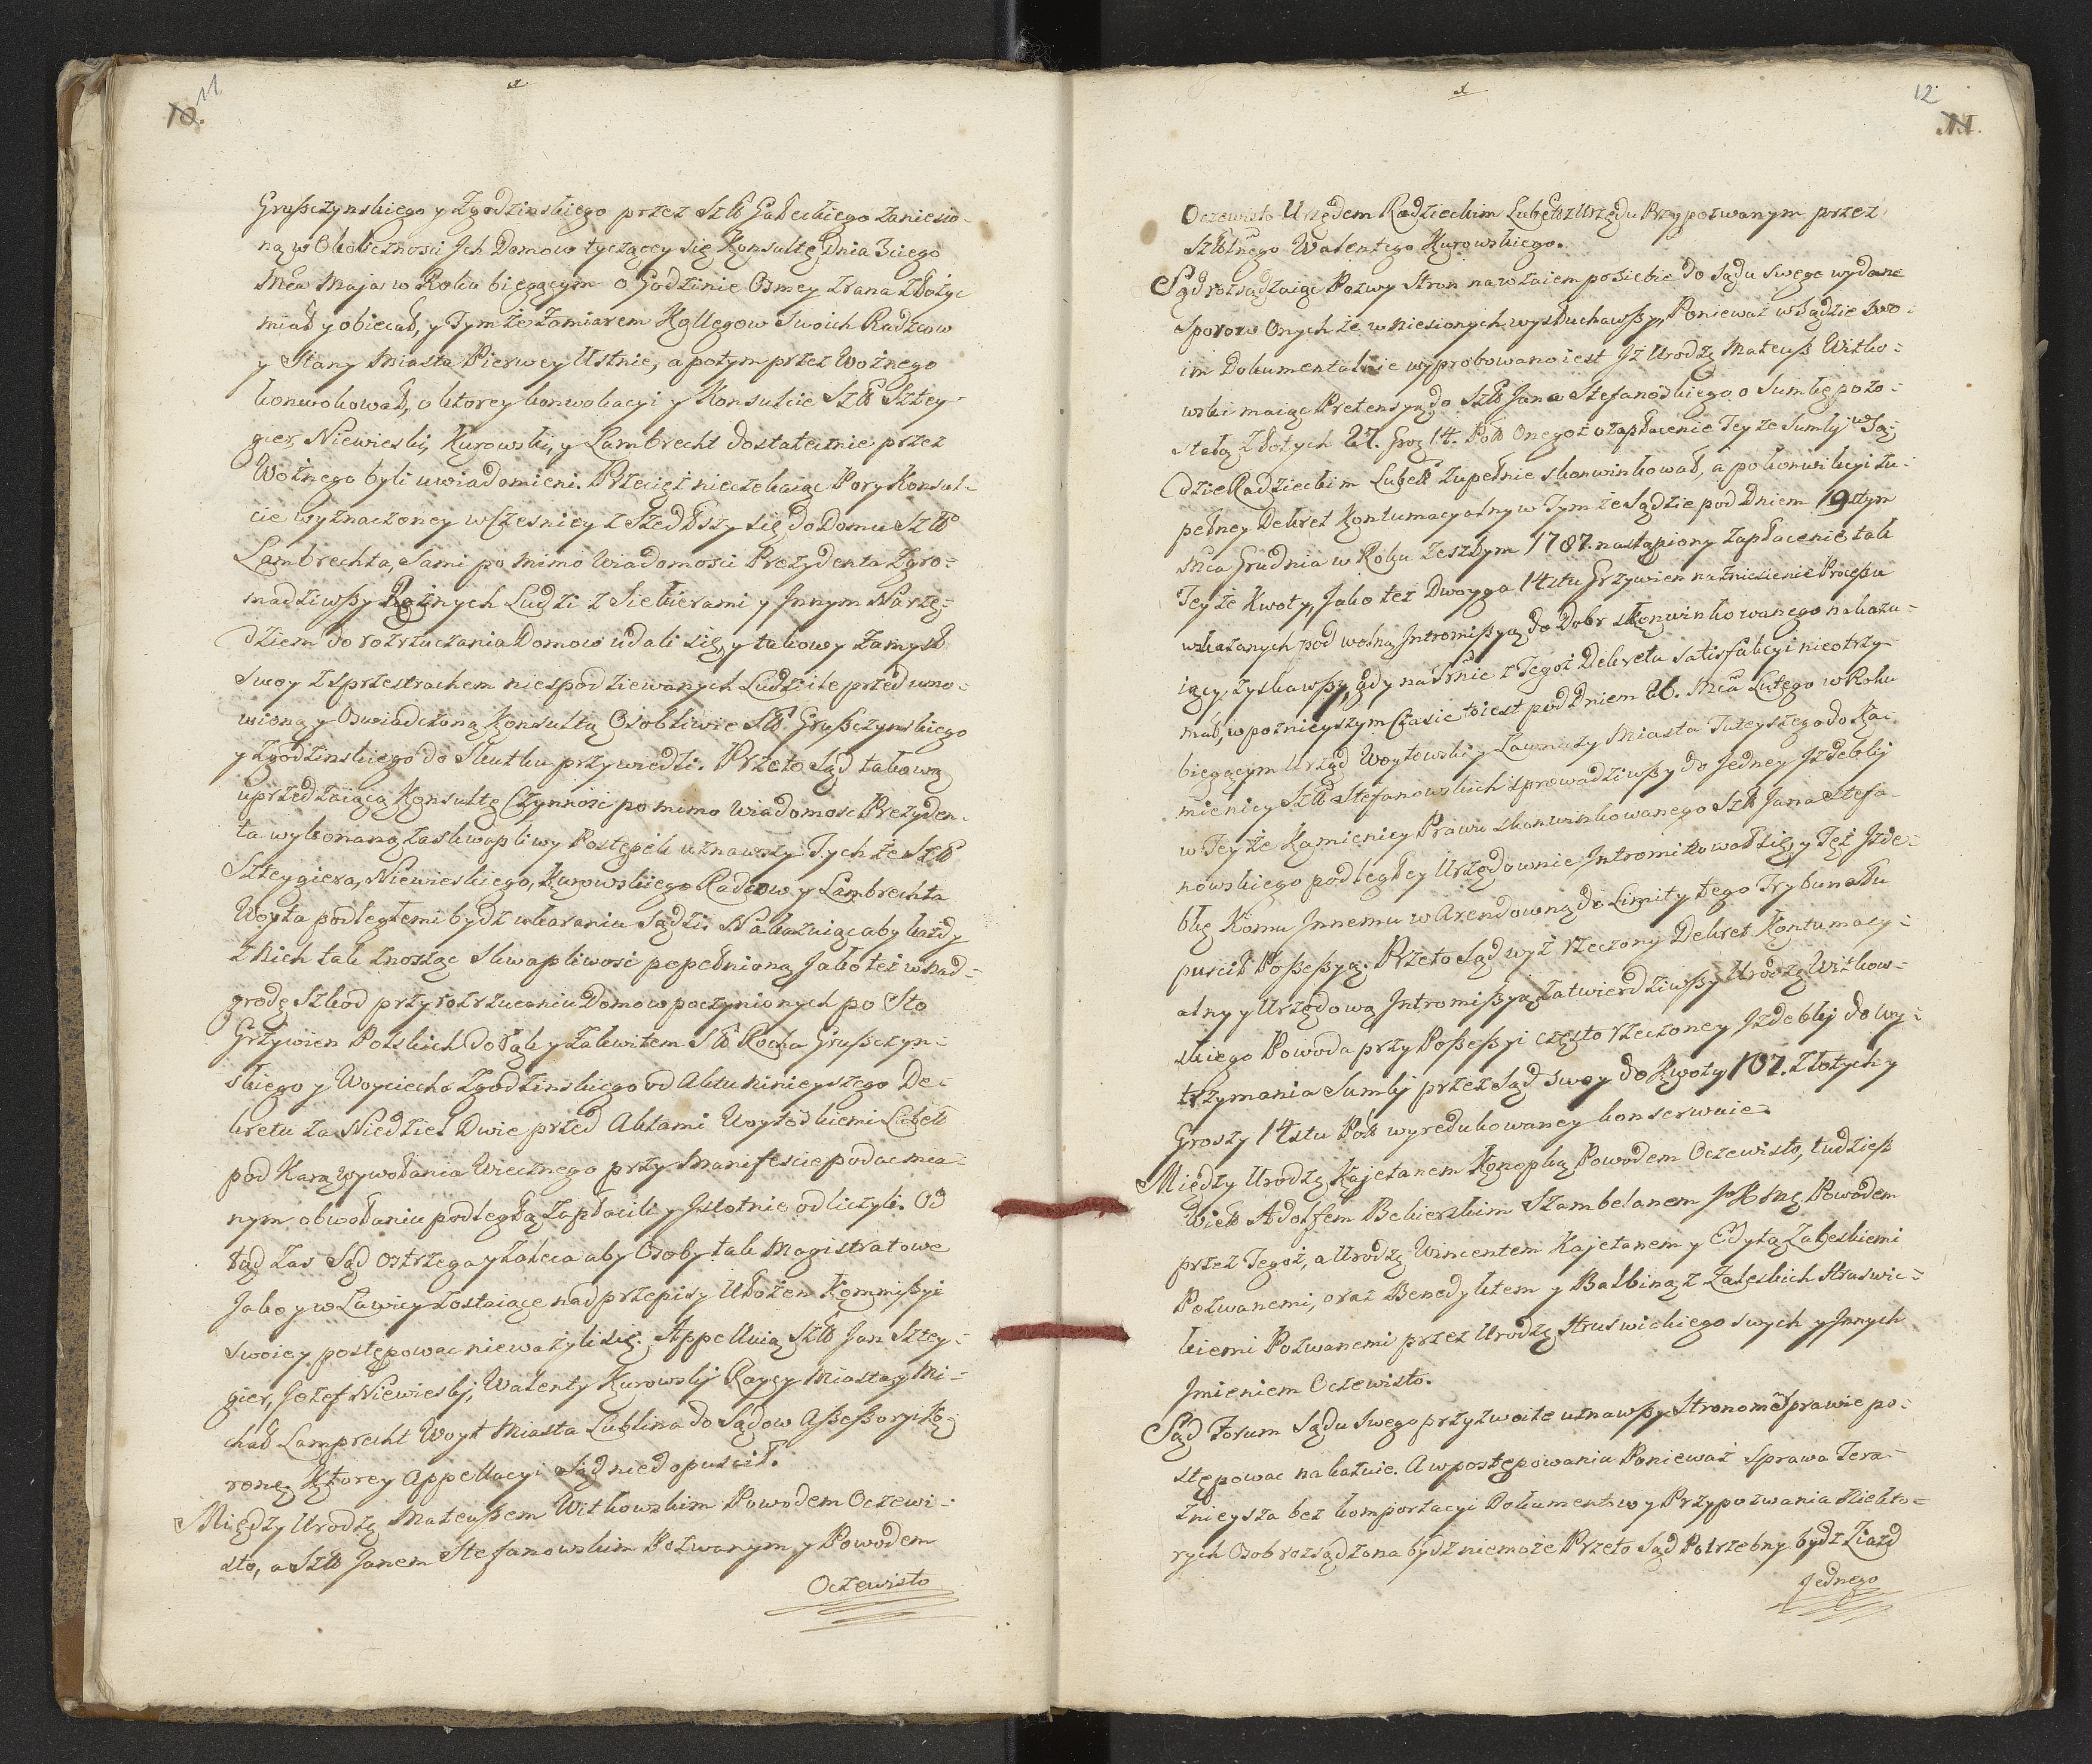 11
10.
Grußczynskiego y Zgodzinskiego przez Szl Gałeckiego zaniesio-
ną w Okoliczności Jch Domow tyczącey się Konsultę, Dnia 3ciego
Mca Maja w Roku bieżącym o Godzinie Osmey zrana złożyc
miał y obiecał, y Tymże zamiarem Kollegow Swoich Radzcow
y Stany Miasta Pierwey Ustnie, a potym przez Woźnego
konwokował, o ktorey konwokacyi y Konsulcie Szl Sztey-
gier, Niewieski, Kurowski, y Lambrecht dostatecznie przez
Woźnego byli uwiadomieni. Przecięż nieczekaiąc Pory Konsul-
cie wyznaczoney wcześniey zszedłszy się do Domu Szl
Lambrechta, Sami pomimo Wiadomości Prezydenta Zgro-
madziwßy Rożnych Ludzi z Siekierami y Jnnym Narzę-
dziem do rozrzucania Domow udali się, y takowy zamysł
swoy z sprzestrachem niespodziewanych Ludzi ile przed umo-
wioną y Oswiadczoną Konsultą Osobliwie Szl Grußczynskiego
y Zgodzinskiego do Skutku przywiedli. Przeto Sąd takową
uprzedzaiącą Konsultę Czynność pomimo Wiadomosc Prezyden-
ta wykonaną za skwapliwy Postępek uznawszy Tychże Szl
Szteygiera, Niewieskiego, Kurowskiego Radcow y Lambrechta
Woyta podległemi bydz ukaraniu Sądzi. Nakazuiąc aby każdy
z Nich tak znosząc Skwapliwość popełnioną Jako też w nad-
grodę Szkod przy rozrzucaniu Domow poczynionych po Sto
Grzywien Polskich do rąk y za kwitem Szl Rocha Grußczyn-
skiego y Woyciecha Zgodzinskiego od Aktu ninieyszego De-
kretu za Niedziel Dwie przed Aktami Woytowskiemi Lubel
pod Karą Wywołania Wiecznego przy Manifeście podac mia-
nym obwołaniu podległą Zapłacili y Jstotnie odliczyli. Od
tąd zas Sąd ostrzega y zaleca aby Osoby tak Magistratowe
Jako y w Ławicy zostaiące nad przepisy Ułożen Kommißyi
swoiey postępowac nieważyli się. Appelluią Szl Jan Sztey-
gier, Jozef Niewieski, Walenty Kurowski Raycy Miasta y Mi-
chał Lamprecht Woyt Miasta Lublina do Sądow Aßeßoryi Ko-
ronę. Ktorey Appellacyi Sąd niedopuscił.
Między Urodzę Mateußem Witkowskim Powodem Oczewi-
sto, a Szl Janem Stefanowskim Pozwanym y Powodem
Oczewisto
12
11.
Oczewisto Urzędem Radzieckim Lubel z Urzędu Przypozwanym przez
Szltnego Walentego Kurowskiego.
Sąd rozsądzaiąc Pozwy Stron nawzaiem po siebie do Sądu swego wydane
Sporow Onychże wniesionych wysłuchawßy, Ponieważ w Sądzie swo-
im Dokumentalnie wyprobowano iest Jż Urodzę Mateuß Witko-
wski maiąc Pretensyą do Szl Jana Stefanoskiego o Sumkę pozo-
stałą Złotych 27. Groz 14. Pol Onegoż o zapłacenie Teyże Sumky w Są-
dzie Radzieckim Lubel zupełnie skonwinkował, a po konwikcyi zu-
pełney Dekret Kontumacyalny w Tymże Sądzie pod Dniem 19stym
Mca Grudnia w Roku zeszłym 1787. nastąpiony zapłacenie tak
Teyże Kwoty, Jako też Dwoyga 14stu Grzywien na zniesienie Proceßu
wskazanych pod wolną Intromißyą do Dobr skonwinkowanego nakazu-
iący, zyskawßy, gdy na Strnie z Tegoż Dekretu satisfakcyi nieotrzy-
mał, w poznieyszym Czasie toiest pod Dniem 26. Mca Lutego w Roku
bieżącym Urząd Woytowski y Ławniczy Miasta Tuteyszego do Ka-
mienicy Szl Stefanowskich sprowadziwßy do Jedney Jzdebky
w Teyże Kamienicy Prawu skonwinkowanego Szl Jana Stefa-
nowskiego podległey Urzędownie Jntromittował się, y Też Jzde-
bkę Komu Jnnemu w Arendowną do Limity tego Trybunału
puscił Poßeßyą. Przeto Sąd wyż rzeczony Dekret Kontumacy-
alny y Urzędową Jntromißyą zatwierdziwßy Urodzę Witkow-
skiego Powoda przy Poßeßyi często rzeczoney Jzdebky do wy-
trzymania Sumky przez Sąd swoy do Kwoty 107. Złotych y
Groszy 14stu Pol wyredukowaney konserwuie.
Między Urodzę Kajetanem Konopką Powodem Oczewisto, tudzieß
Wiel Adolfem Bekierskim Szambelanem JKMnę Powodem
przez Tegoż, a Urodzę Wincentem Kajetanem y Edytą Zaleskiemi
Pozwanemi, oraz Benedyktem y Balbiną z Zaleskich Struswic-
kiemi Pozwanemi przez Urodzę Struswickiego swych y Jnnych
Jmieniem Oczewisto.
Sąd Forum Sądu swego przyzwoite uznawßy Stronom w Sprawie po-
stępowac nakazuie. A w postępowaniu Ponieważ Sprawa Tera-
znieysza bez komportacyi Dokumentow y Przypozwania niekto-
rych Osob rozsądzona bydz niemoże Przeto Sąd Potrzebny bydz Ziazd
Jednego